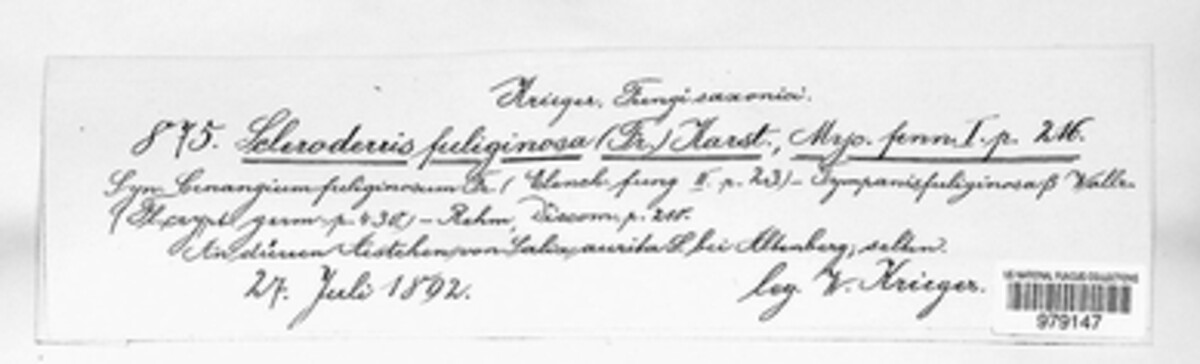 Krieger. Fungi saxonici.
875. Scleroderris fuliginosa (Fr.) Karst., Myc. fenn. I. p. 216.
Syn. Cenangium fuliginosum Fr. (Elench. fung. II. p. 23) – Tympanis fuliginosa β Wallr.
(Fl. crypt. germ. p. 430) – Rehm, Discom. p. 210.
An dürren Aestchen von Salix aurita L. bei Altenberg, selten.
27. Juli 1892. leg. W. Krieger.
US NATIONAL FUNGUS COLLECTIONS
979147